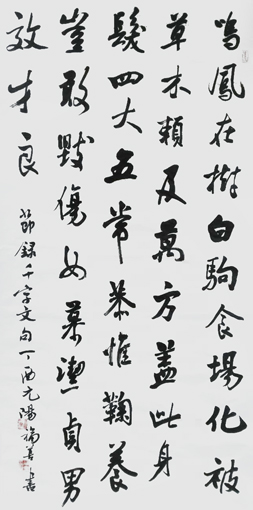 鳴鳳在樹白駒食場化被
草木賴及萬方蓋此身
髮四大五常恭惟鞠養
豈敢毀傷女慕潔貞男
效才良
節錄千字文句丁酉元陽福善書